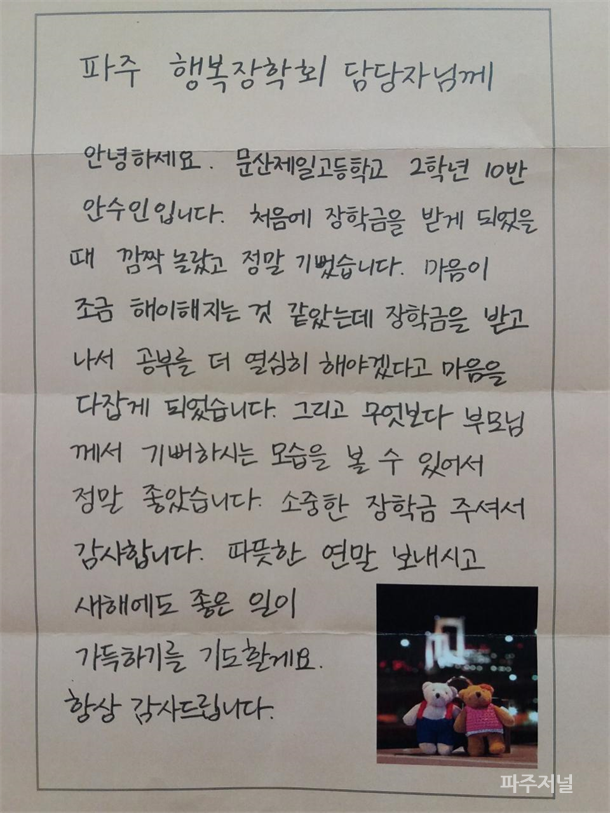 파주 행복장학회 담당자님께
안녕하세요. 문산제일고등학교 2학년 10반
안수인입니다. 처음에 장학금을 받게 되었을
때 깜짝 놀랐고 정말 기뻤습니다. 마음이
조금 해이해지는 것 같았는데 장학금을 받고
나서 공부를 더 열심히 해야겠다고 마음을
다잡게 되었습니다. 그리고 무엇보다 부모님
께서 기뻐하시는 모습을 볼 수 있어서
정말 좋았습니다. 소중한 장학금 주셔서
감사합니다. 따뜻한 연말 보내시고
새해에도 좋은 일이
가득하기를 기도할게요.
항상 감사드립니다.
파주저널